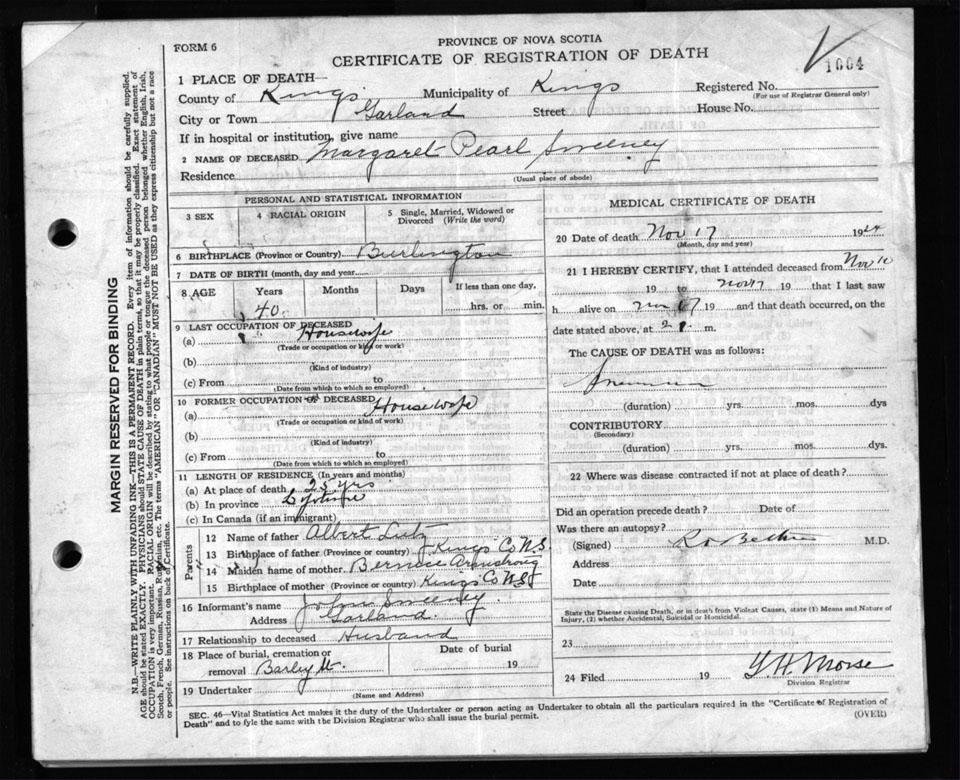 PROVINCE OF NOVA SCOTIA
FORM 6
CERTIFICATE OF REGISTRATION OF DEATH
1004
1 PLACE OF DEATH—
County of Kings Municipality of Kings Registered No.
(For use of Registrar General only)
City or Town Garland Street House No.
If in hospital or institution, give name
2 NAME OF DECEASED Margaret Pearl Sweeney
Residence
(Usual place of abode)
PERSONAL AND STATISTICAL INFORMATION
3 SEX 4 RACIAL ORIGIN 5 Single, Married, Widowed or Divorced (Write the word)
6 BIRTHPLACE (Province or Country) Burlington
7 DATE OF BIRTH (month, day and year
8 AGE Years Months Days If less than one day,
40 hrs. or min.
9 LAST OCCUPATION OF DECEASED
(a) Housewife
(Trade or occupation or kind or work)
(b)
(Kind of industry)
(c) From to
(Date from which to which so employed)
10 FORMER OCCUPATION OF DECEASED
(a) Housewife
(Trade or occupation or kind of work)
(b)
(Kind of industry)
(c) From to
(Date from which to which so employed)
11 LENGTH OF RESIDENCE (In years and months)
(a) At place of death 25 yrs
(b) In province Lifetime
(c) In Canada (if an immigrant)
Parents
12 Name of father Albert Lutz
13 Birthplace of father (Province or country) Kings Co N.S.
14 Maiden name of mother Bernice Armstrong
15 Birthplace of mother (Province or country) Kings Co N.S
16 Informant's name John Sweeney
Address Garland
17 Relationship to deceased Husband
18 Place of burial, cremation or Date of burial
removal 19
19 Undertaker
(Name and Address)
MEDICAL CERTIFICATE OF DEATH
20 Date of death Nov 17 1924
(Month, day and year)
21 I HEREBY CERTIFY, that I attended deceased from Nov 10
19 to Nov 17 19 and that I last saw
h alive on Nov 19 and that death occurred, on the
date stated above, at 2 P. m.
The CAUSE OF DEATH was as follows:
(duration) yrs. mos. dys
CONTRIBUTORY
(Secondary)
(duration) yrs. mos. dys.
22 Where was disease contracted if not at place of death?
Did an operation precede death? Date of
Was there an autopsy?
(Signed) M.D.
Address
Date
State the Disease causing Death, or in death from Violent Causes, state (1) Means and Nature of
Injury, (2) whether Accidental, Suicidal or Homicidal.
23
24 Filed 19 Morse
Division Registrar
SEC. 46—Vital Statistics Act makes it the duty of the Undertaker or person acting as Undertaker to obtain all the particulars required in the "Certificate of Registration of
Death" and to fyle the same with the Division Registrar who shall issue the burial permit. (OVER)
MARGIN RESERVED FOR BINDING
N.B.—WRITE PLAINLY WITH UNFADING INK—THIS IS A PERMANENT RECORD. Every item of information should be carefully supplied.
AGE should be stated EXACTLY. PHYSICIANS should STATE CAUSE OF DEATH in plain terms, so that it may be properly classified. Exact statement of
OCCUPATION is very important. RACIAL ORIGIN will be described by stating to what people or tongue the deceased person belonged whether English, Irish,
Scotch, French, German, Russian, Rumanian, etc. The terms "AMERICAN" OR "CANADIAN" MUST NOT BE USED as they express citizenship but not a race
or people. See instructions on back of Certificate.